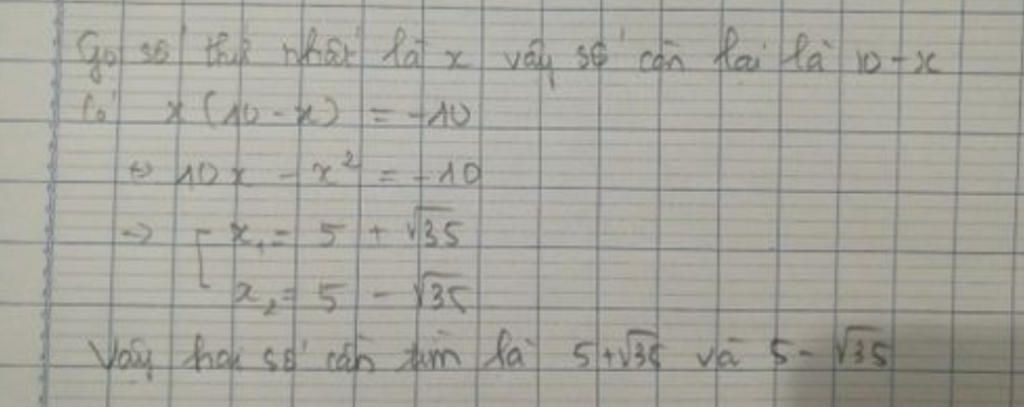 Gọi số thứ nhất là x vậy số còn lại là 10 - x
Có x (10 - x) = -10
⇔ 10x - x² = -10
⇒ [ x₁ = 5 + √35
x₂ = 5 - √35
Vậy hai số cần tìm là 5+√35 và 5 - √35